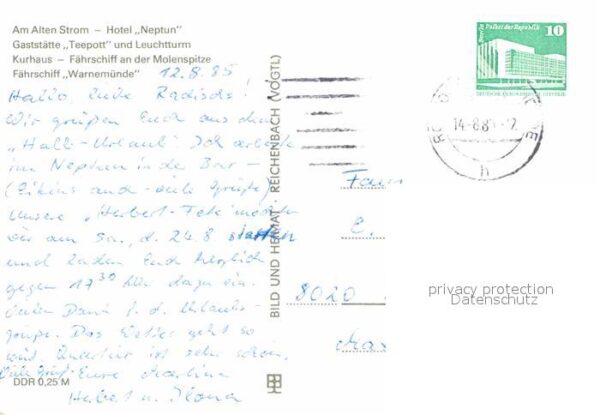 Am Alten Strom – Hotel „Neptun"
Gaststätte „Teepott" und Leuchtturm
Kurhaus – Fährschiff an der Molenspitze
Fährschiff „Warnemünde"
12.8.85
Hallo, liebe Radischs!
Wir grüßen Euch aus dem
„Halb-Urlaub". Ich arbeite
im Neptun in der Bar –
auch Grüße)
Unsere „Herbert-Fete" möchten
wir am Sa., d. 24.8 starten
und laden Euch herzlich
gegen 17³⁰ Uhr dazu ein.
Vielen Dank f. d. Urlaubs-
grüße. Das Wetter geht so
und ist sehr schön.
Viele Grüße Eure Martina
Herbert u. Ilona
DDR 0,25 M
BILD UND HEIMAT · REICHENBACH (VOGTL)
Berlin Palast der Republik
10
DEUTSCHE DEMOKRATISCHE REPUBLIK
14-8.8
h
Fam
E.
8020
privacy protection
Datenschutz